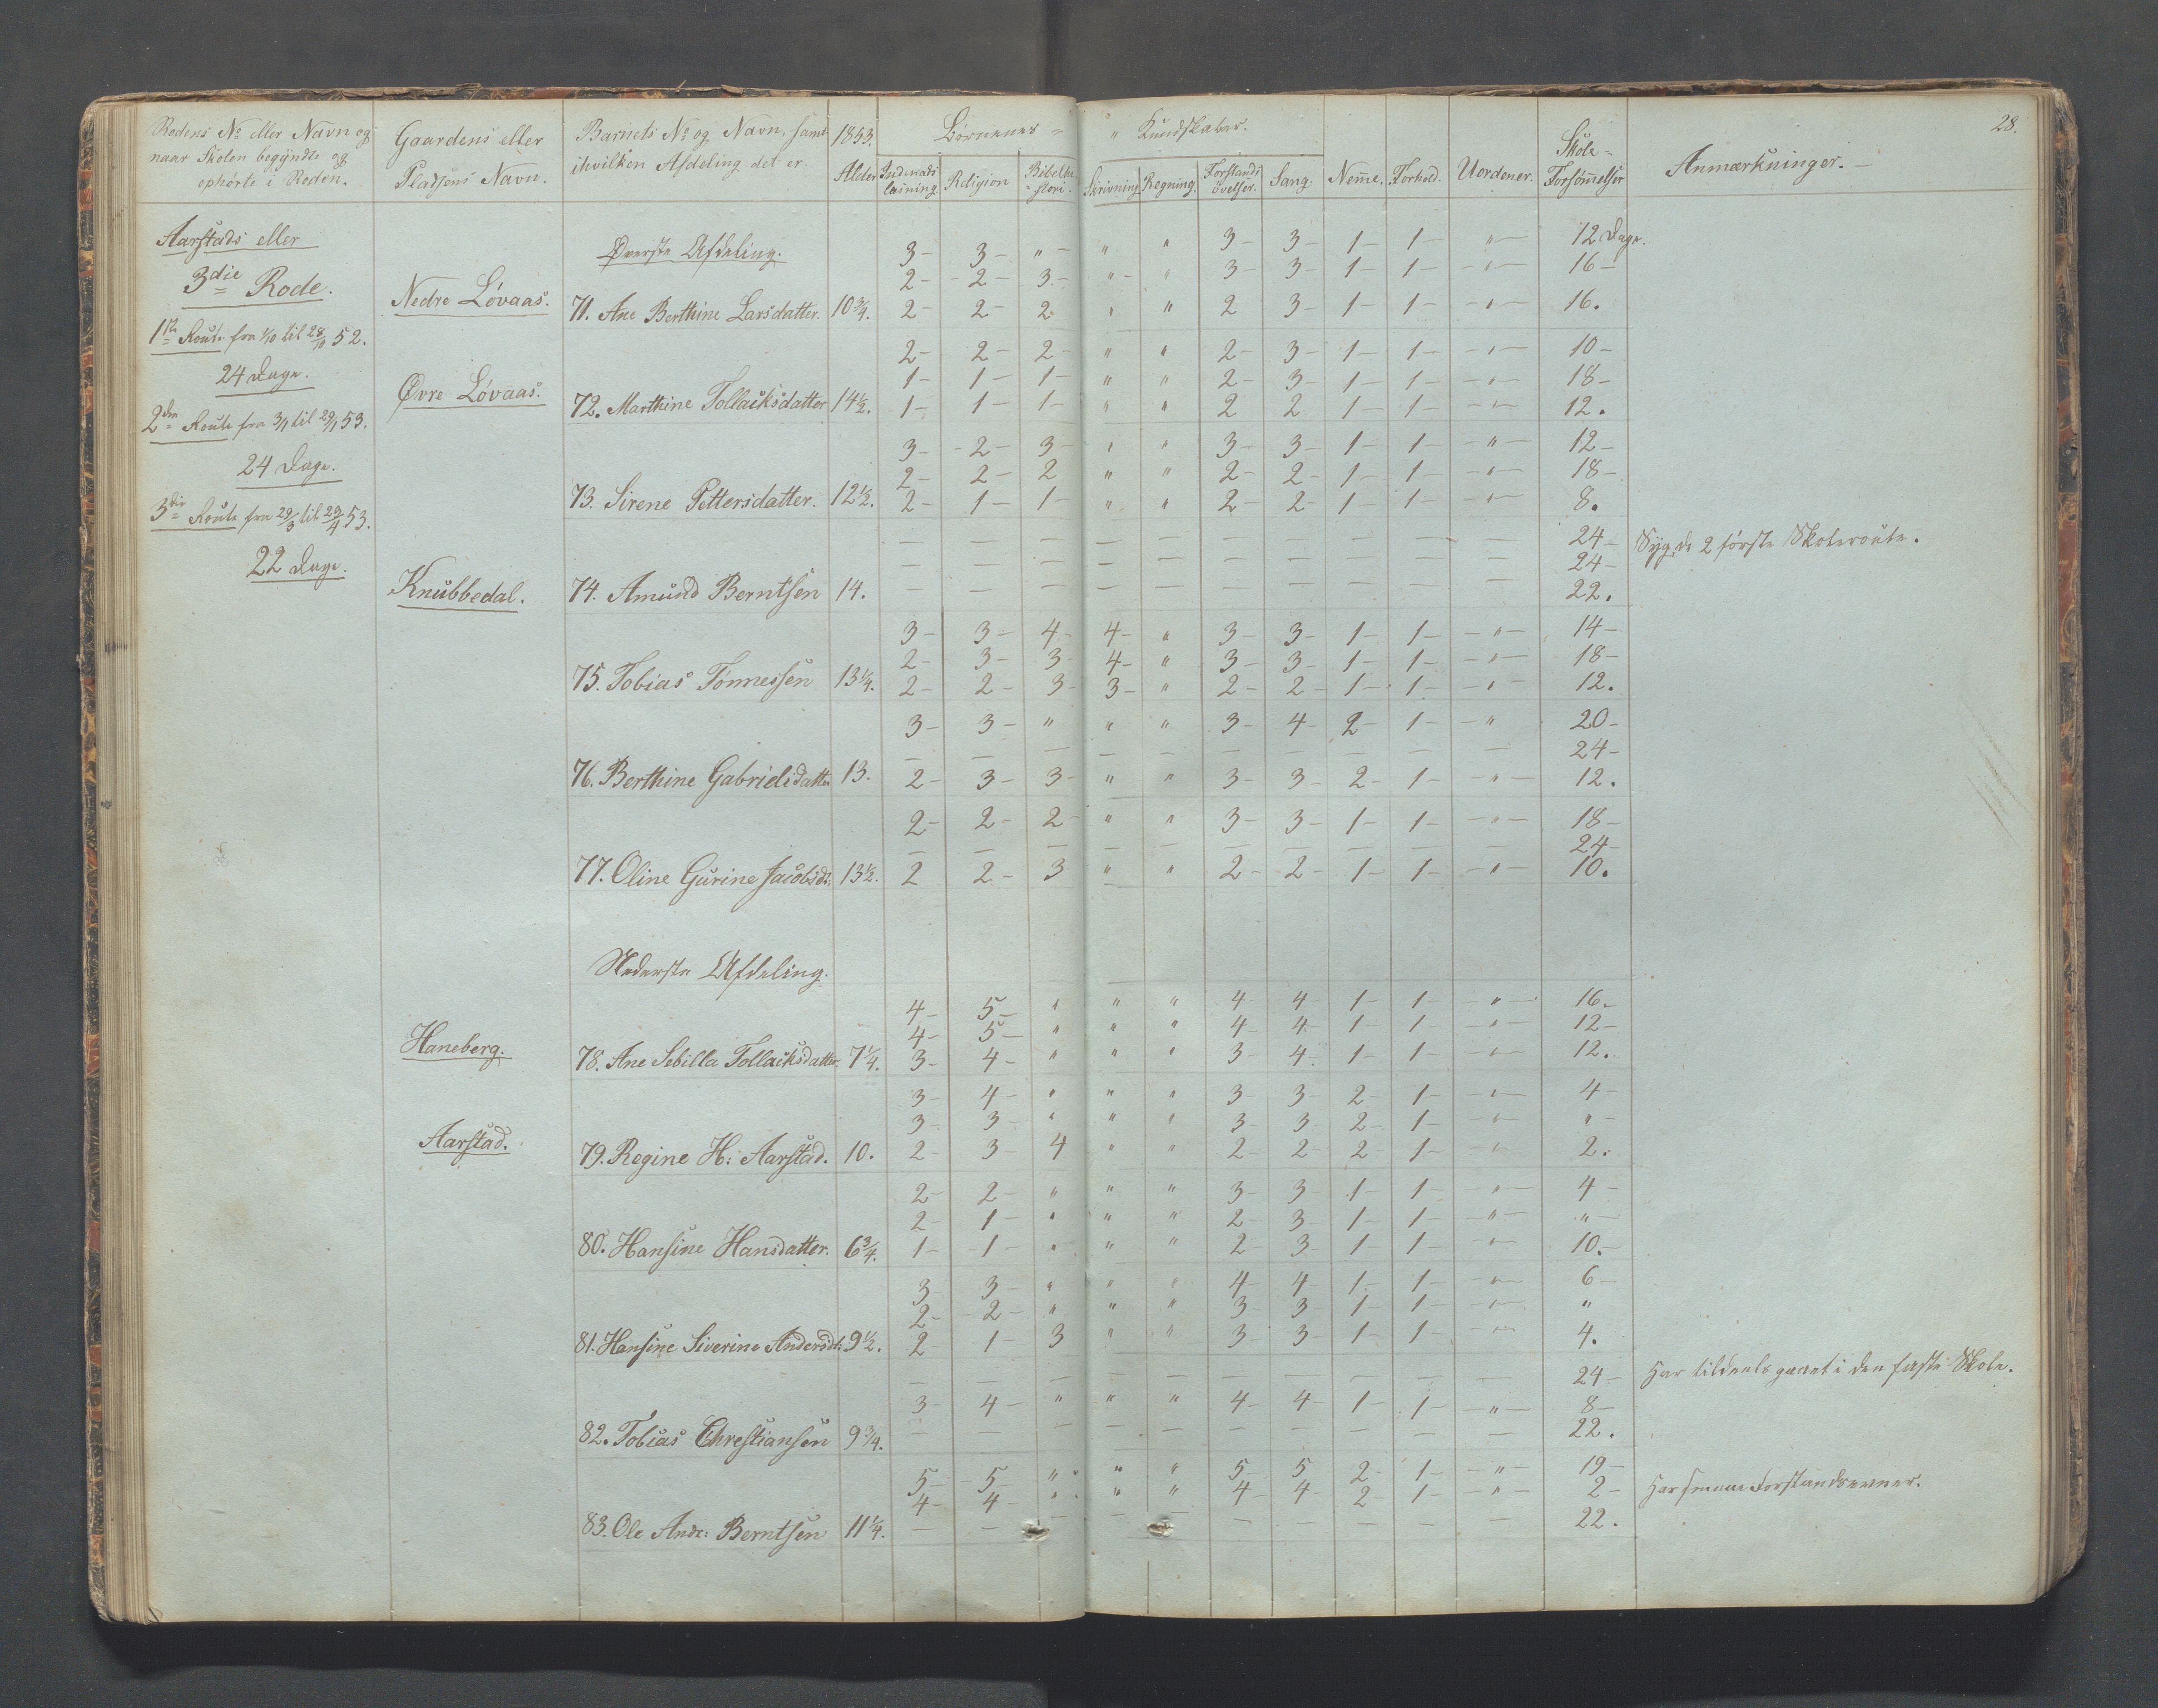 28.
Rodens No eller Navn og naar Skolen begyndte og ophørte i Roden.
Gaardens eller Pladsens Navn.
Barnets No og Navn, samt ihvilken Afdeling det er.
1853. Alder
Børnenes " " Kundskaber.
Indenadslæsning Religion Bibelhistori. Skrivning Regning. Forstandsøvelser. Sang. Nem̅e. Forhold. Uordener. Skole-Forsøm̅elser Anmærkninger.
Aarstads eller
3die Rode.
1ste Route fra 1/10 til 28/10 52.
24 Dage.
2den Route fra 3/1 til 29/1 53.
24 Dage.
3die Route fra 29/3 til 29/4 53.
22 Dage.
Øverste Afdeling.
3- 3- " - " " 3- 3- 1- 1- " 12 Dage.
2- 2- 3- " - " 3- 3- 1- 1- " 16-
Nedre Løvaas. 71. Ane Berthine Larsdatter. 10 3/4. 2- 2- 2- " " 2 3- 1- 1- " 16.
2- 2- 2- " " 2- 3- 1- 1- " 10-
1- 1- 1- " " 2- 3- 1- 1- " 18-
Øvre Løvaas. 72. Marthine Tollacksdatter 14 1/2. 1- 1- 1- " " 2 2 1- 1- " 12.
3- 2- 3- " " 3- 3- 1- 1- " 12-
2- 2- 2 " " 2- 2- 1- 1- " 18-
73. Sirene Pettersdatter. 12 1/2. 2- 1- 1- " " 2- 2- 1- 1- " 8.
— — — — — — — — — — 24- Syg de 2 første Skoleroute.
— — — — — — — — — — 24-
Knubbedal. 74. Amund Berntsen 14. — — — — — — — — — — 22.
3- 3- 4- 4- " 3- 3- 1- 1- " 14-
2- 3- 3- 4- " 3- 3- 1- 1- " 18-
75. Tobias Tønnessen 13 1/4. 2- 2- 3- 3- " 2- 2- 1- 1- " 12.
3- 3- " " " 3- 4- 2- 1- " 20-
— — — — — — — — — — 24-
76. Berthine Gabrielsdatter 13. 2- 3- 3- " " 3- 3- 2- 1- " 12.
2- 2- 2- " " 3- 3- 1- 1- " 18-
— — — — — — — — — — 24-
77. Oline Gurine Jacobsdr. 13 1/2. 2 2- 3 " " 2- 2- 1- 1- " 10.
Nederste Afdeling.
4- 5- " " " 4 4 1- 1- " 16-
4- 5- " " " 4- 4- 1- 1 " 12-
Haneberg. 78. Ane Sebilla Tollacksdatter. 7 1/4. 3- 4- " " " 3- 4- 1- 1- " 12.
3- 4- " " " 3- 3- 2- 1- " 4-
3- 3- " " " 3- 3- 2- 1- " " -
Aarstad. 79. Regine H: Aarstad. 10. 2- 3 4 " " 2- 2- 2- 1- " 2.
2- 2- " " " 3- 3- 1- 1- " 4-
2- 1- " " " 2- 3- 1- 1- " " -
80. Hansine Hansdatter. 6 3/4. 1- 1- " " " 2- 3- 1- 1- " 10.
3 3- " " " 4- 4- 1- 1- " 6-
2- 2- " " " 3- 3- 1- 1- " "
81. Hansine Siverine Andersdr. 9 1/2. 2- 1- 3 " " 3- 3- 1- 1- " 4.
— — — — — — — — — — 24- Har tildeels gaaet i den faste Skole.
3- 4- " " " 4- 4- 1- 1- " 8-
82. Tobias Christiansen 9 3/4. — — — — — — — — — — 22.
5- 5- " " " 5- 5 2- 1- " 19-
4- 4- " " " 4- 4- 2- 1- " 2- Har smaae Forstandsevner.
83. Ole Andr: Berntsen 11 1/4. — — — — — — — — — — 22.